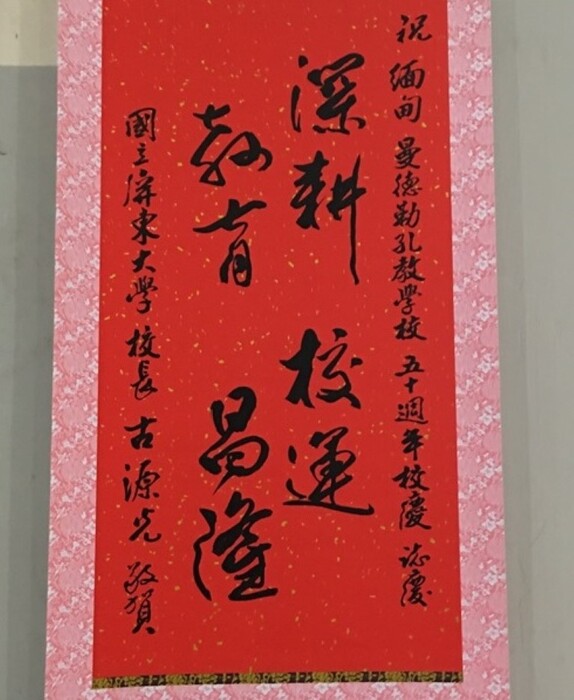 祝 緬甸 曼德勒孔教學校 五十週年校慶 誌慶
深耕 校運
教育 昌隆
國立屏東大學 校長 古源光 敬賀